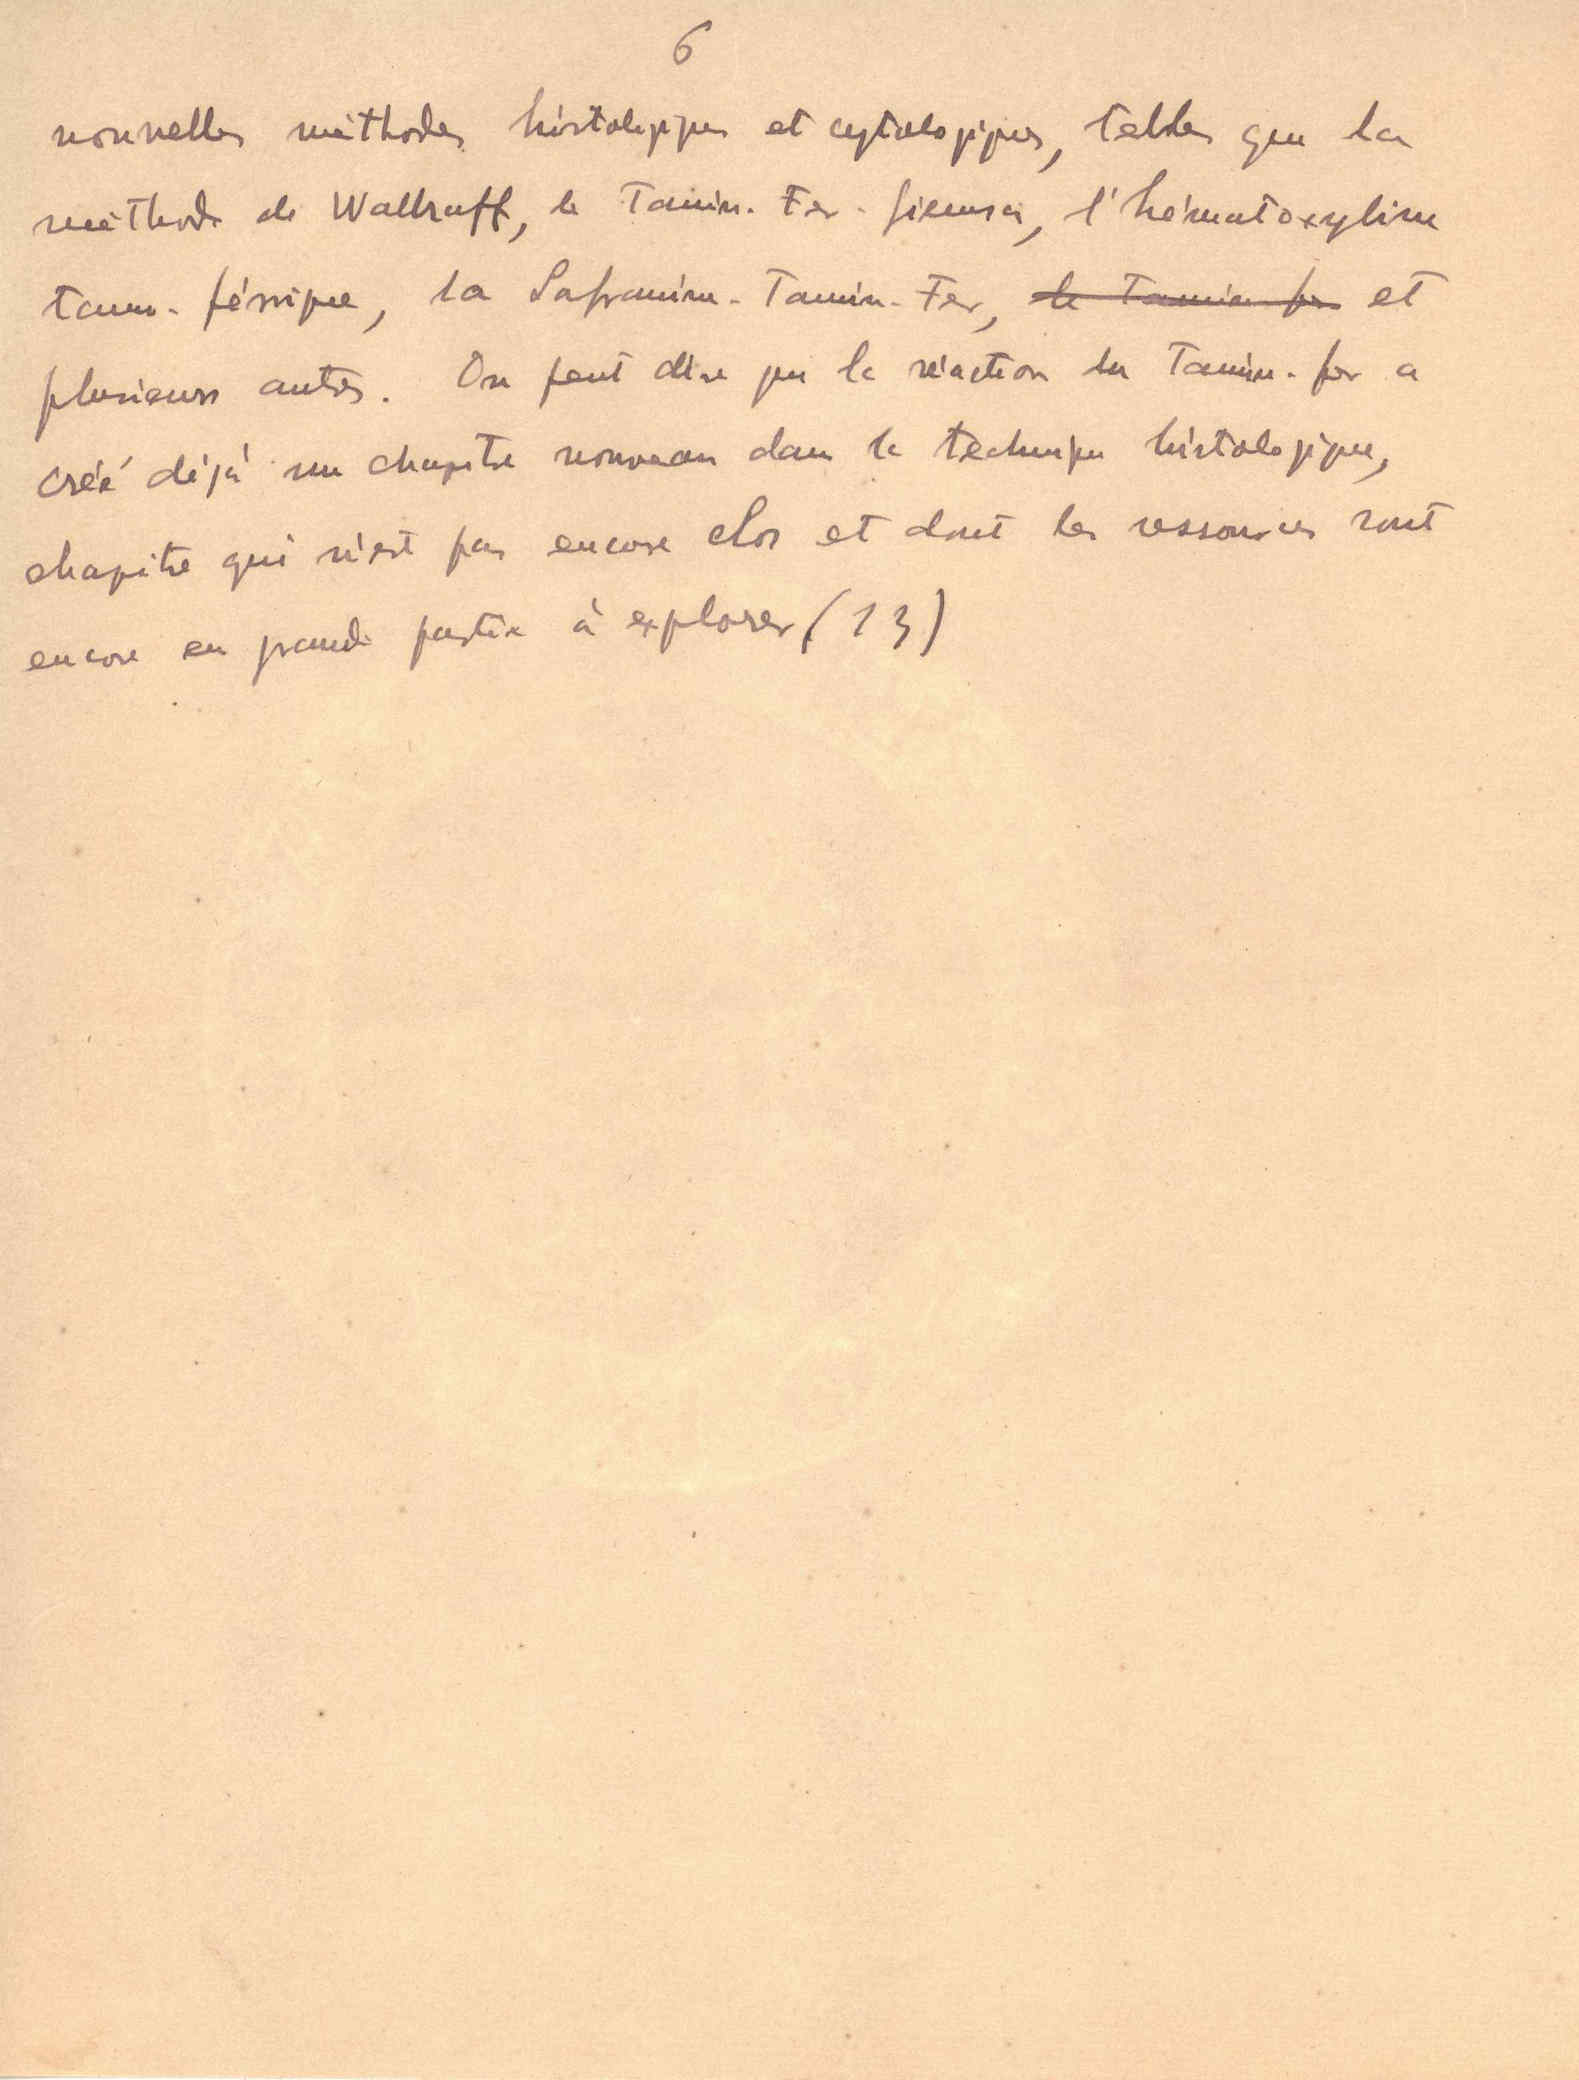 6
nouvelles méthodes histologiques et cytologiques, telles que la
méthode de Wallraff, le Tannin-Fer-giemsa, l'hématoxyline
tanno-férrique, la Safranine-Tannin-Fer, le Tannin fer et
plusieurs autres. On peut dire que la réaction du Tannin-fer a
créé déjà un chapitre nouveau dans la technique histologique,
chapitre qui n'est pas encore clos et dont les ressources sont
encore en grande partie à explorer (13)